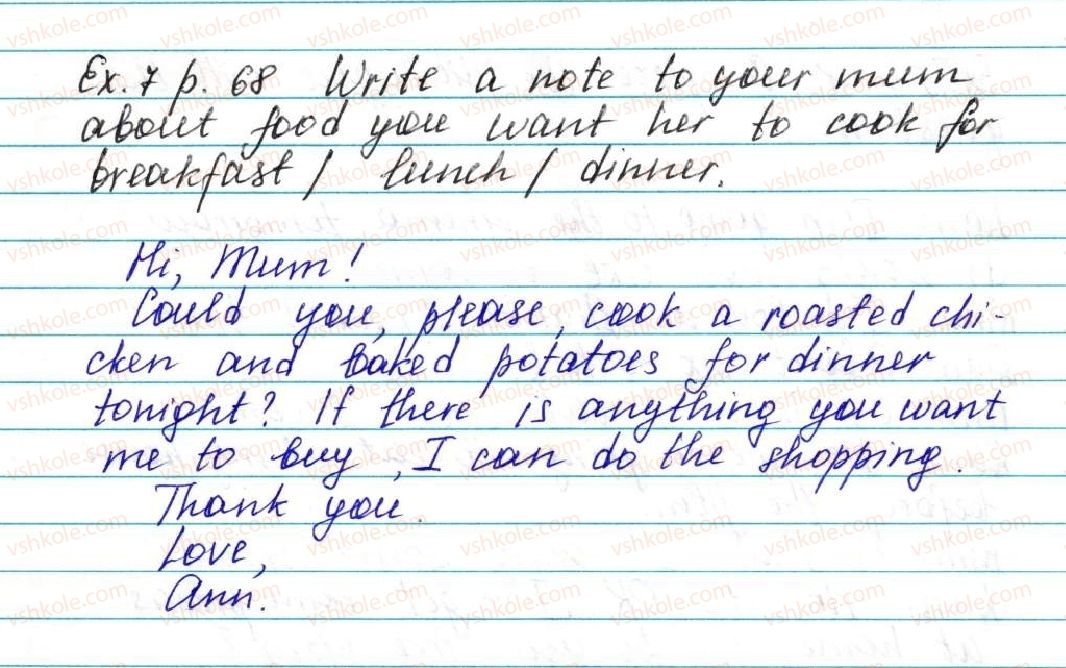 Ex. 7 p. 68 Write a note to your mum
about food you want her to cook for
breakfast / lunch / dinner.
Hi, Mum!
Could you, please, cook a roasted chi-
cken and baked potatoes for dinner
tonight? If there is anything you want
me to buy, I can do the shopping.
Thank you.
Love,
Ann.